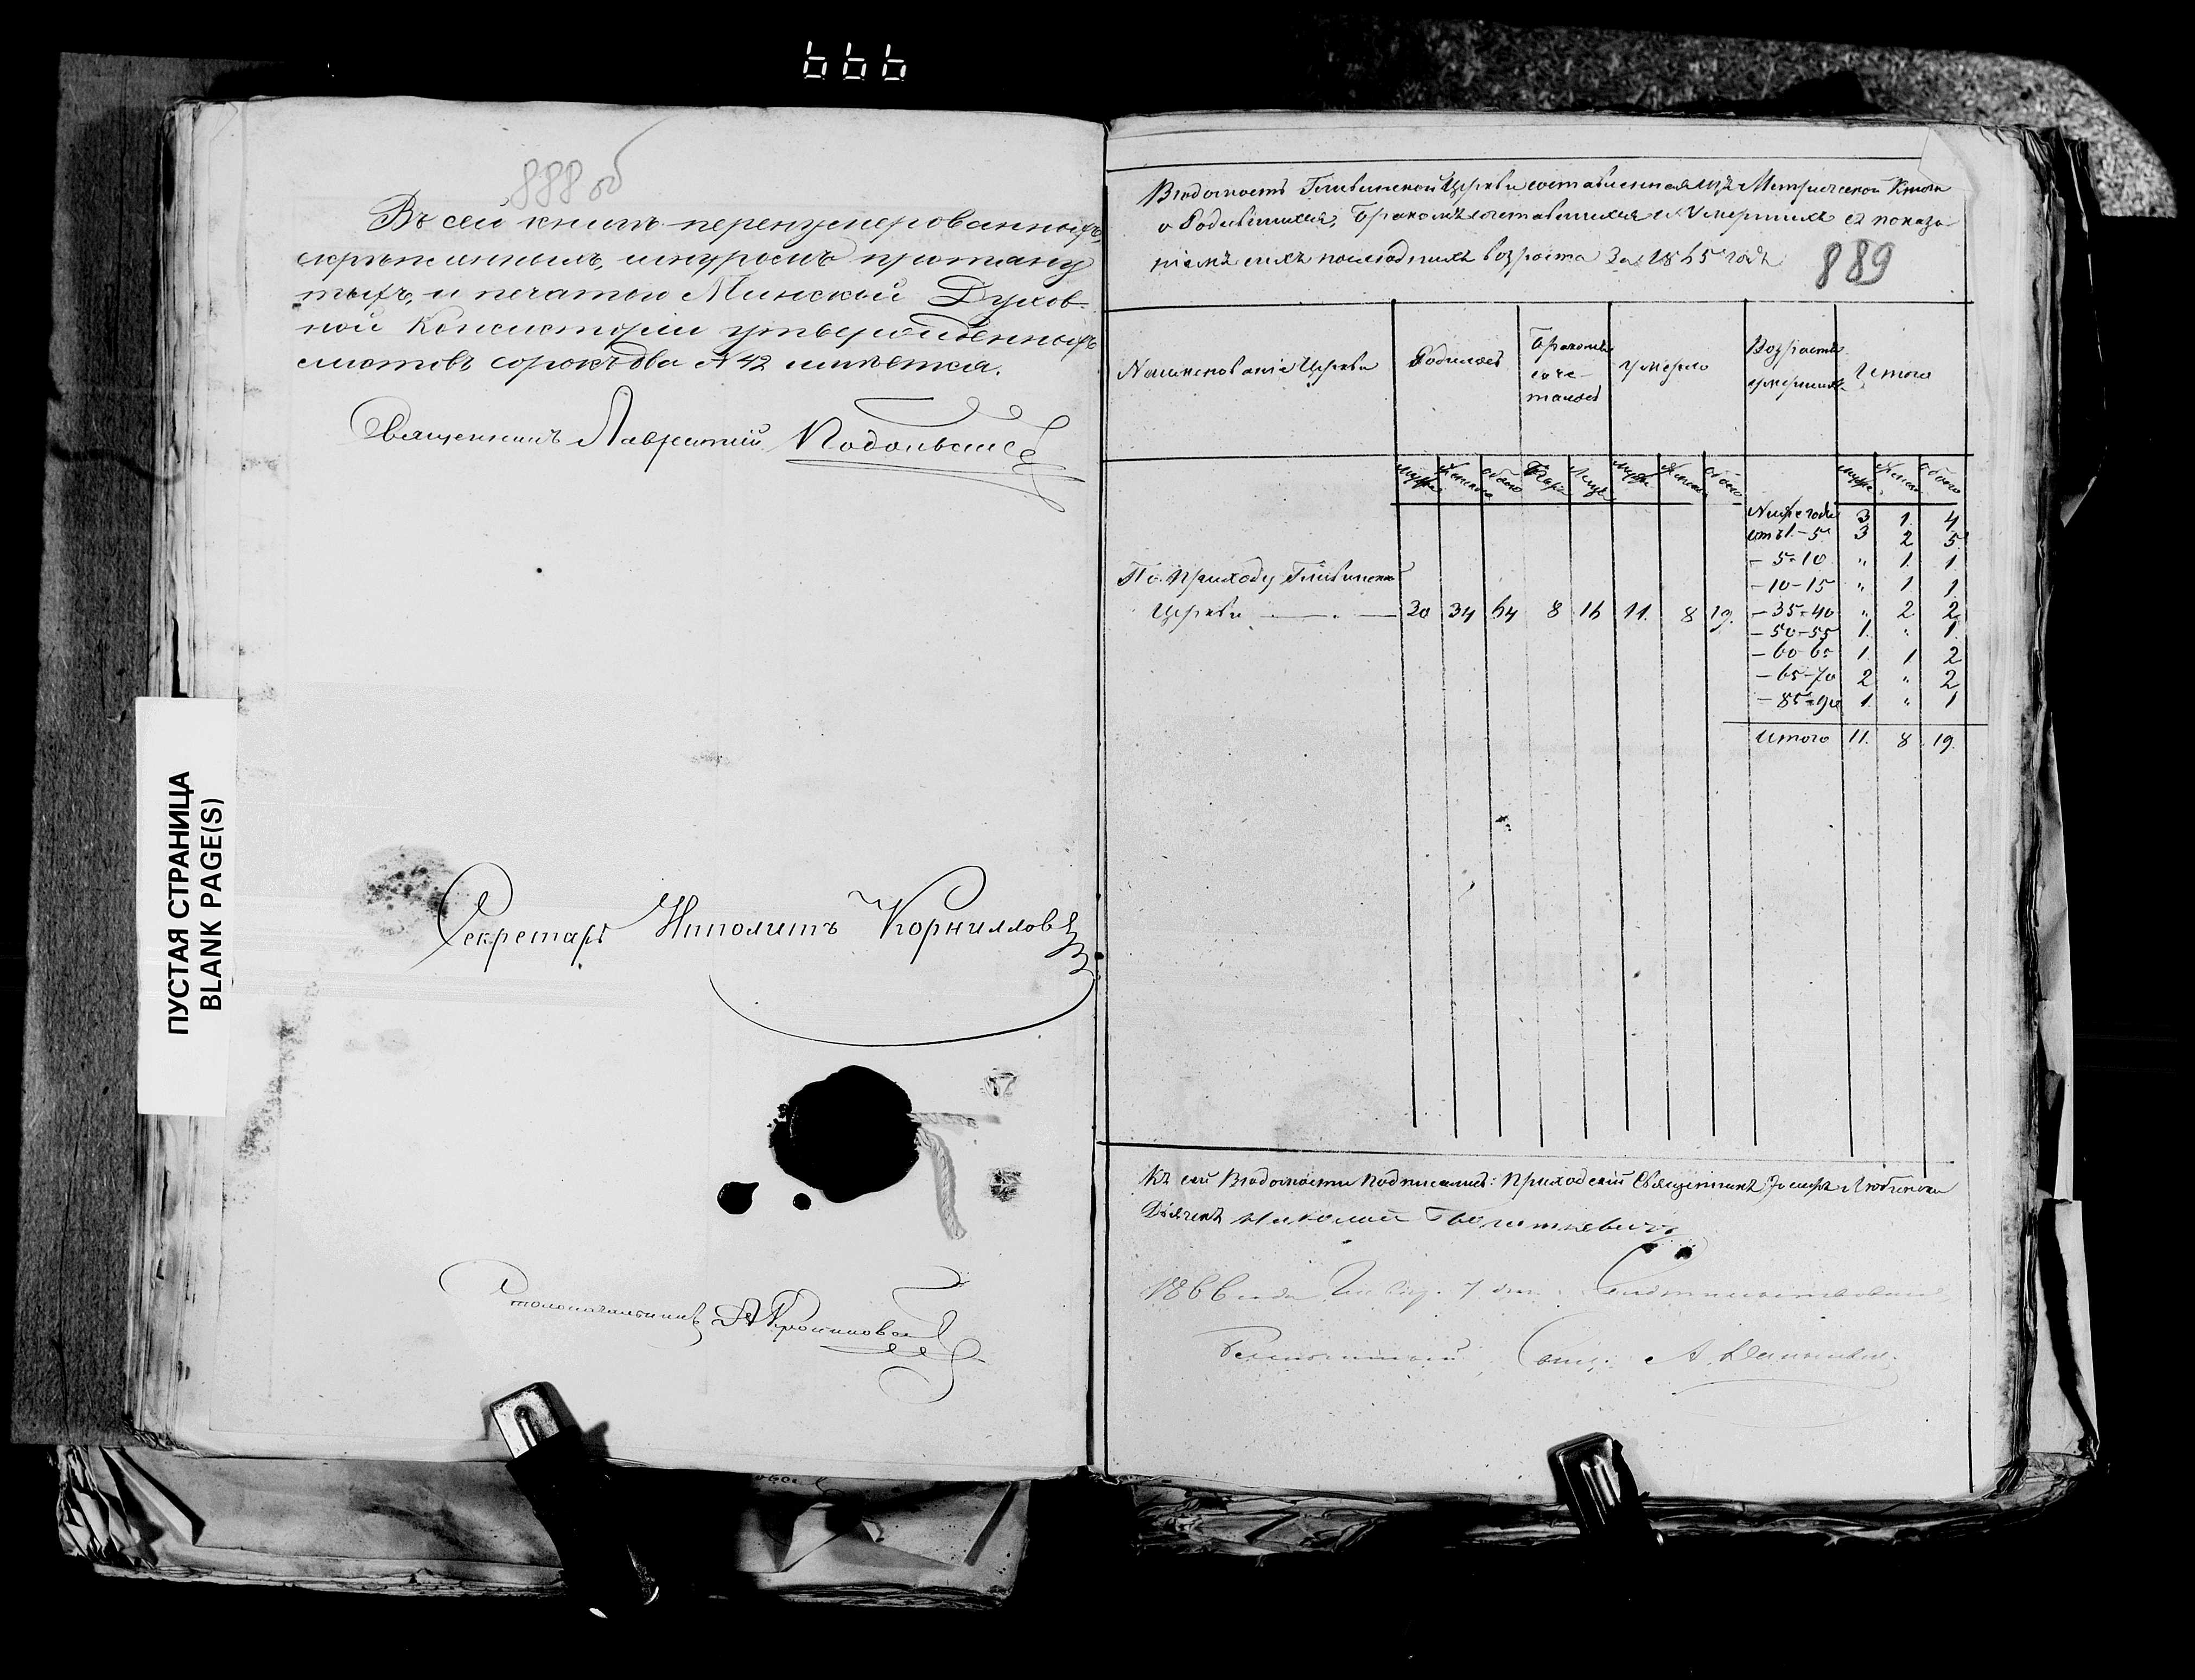 666
888 об
Въ сей книгѣ перенумерованныхъ,
скрѣпленныхъ, шнуромъ протяну
тыхъ, и печатью Минской Духов-
ной Консисторіи утвержденныхъ
листовъ сорокъ два № 42 имѣется.
Священникъ Лаврентій
Секретарь Иполитъ Корниллов
Столоначальникъ
ПУСТАЯ СТРАНИЦА
BLANK PAGE(S)
Вѣдомость Гливинской Церкви составленная изъ Метрической Книги
о Родившихся, Бракомъ сочетавшихся и Умершихъ съ показа-
ніемъ сихъ послѣднихъ возраста За 1865 годъ
889
Наименованіе Церкви Родилось Бракомъ соче- талось Умерло Возрастъ умершихъ Итого
Муж. Женска Обоего Паръ Лицъ Муж. Женск. Обоего Муж. Женск. Обоего
Ниже года 3 1 4
отъ 1-5 3 2 5
- 5-10 " 1 1
- 10-15 " 1 1
По Приходу Гливинской
Церкви 30 34 64 8 16 11 8 19. - 35-40 " 2 2
- 50-55 1 " 1
- 60-65 1 1 2
- 65-70 2 " 2
- 85-90 1 " 1
Итого 11. 8 19.
Къ сей Вѣдомости подписались: Приходскій Священникъ
Дьячекъ Николай
1866 года 7 дня
А.